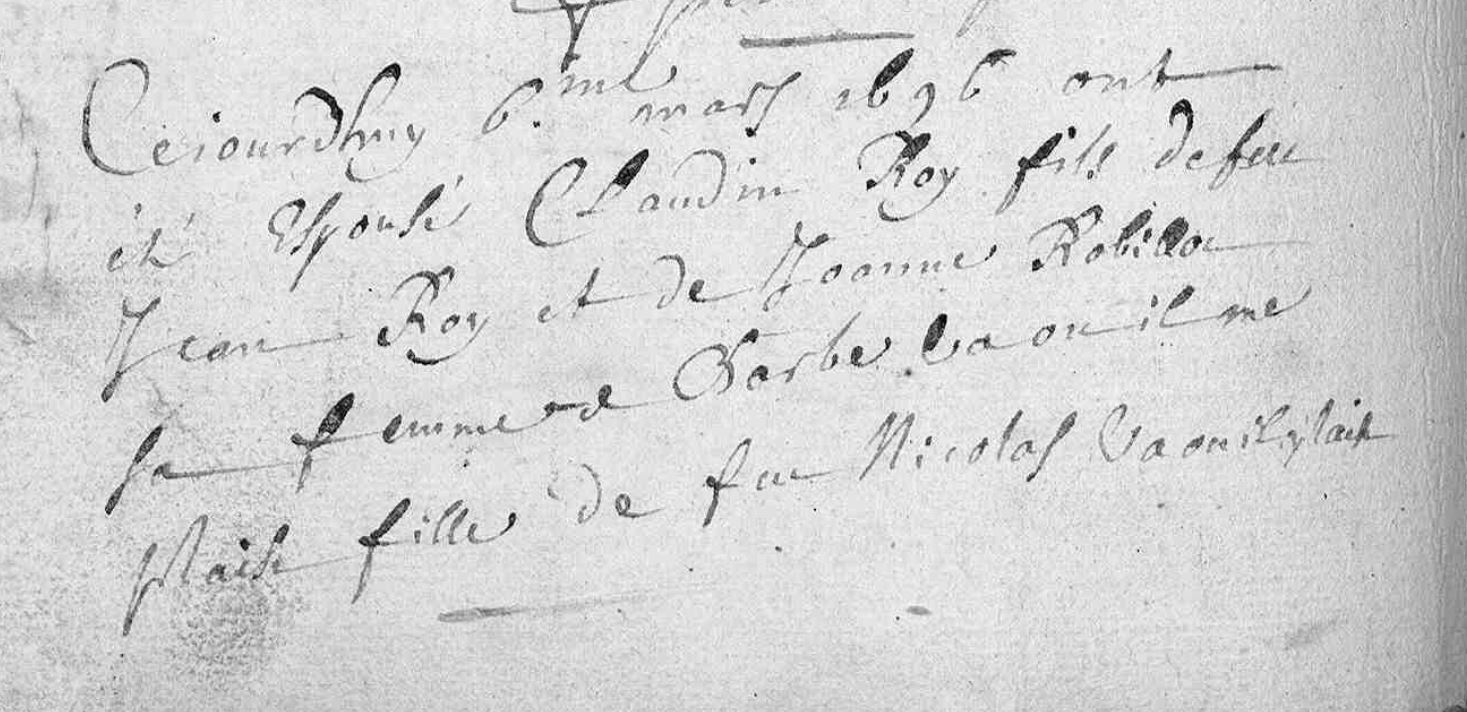 Ceiourdhuy 6.me mars 1696 ont
été Espousé Claudin Roy fils defeu
Jean Roy et de Joanne
sa femme et Barbe Va ou il me
plaist fille de feu Nicolas Vaouilyplait